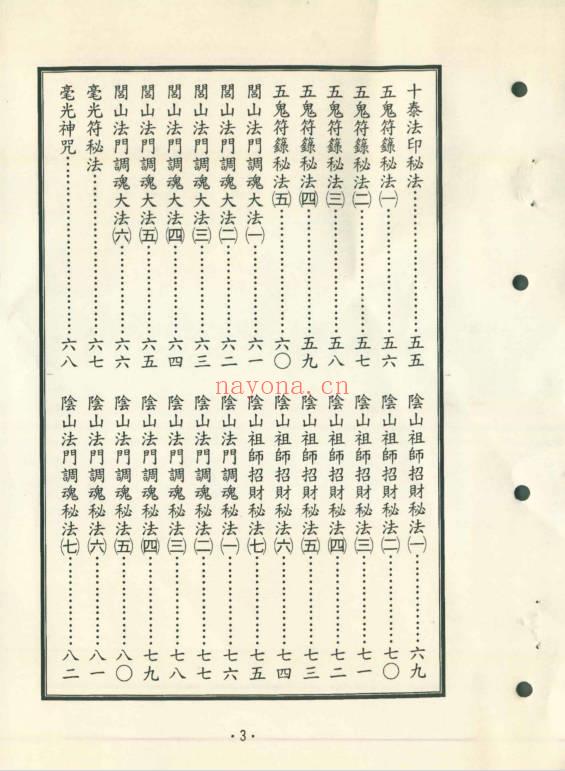 十泰法印秘法……………………五五
五鬼符籙秘法㈠…………………五六
五鬼符籙秘法㈡…………………五七
五鬼符籙秘法㈢…………………五八
五鬼符籙秘法㈣…………………五九
五鬼符籙秘法㈤…………………六〇
閭山法門調魂大法㈠……………六一
閭山法門調魂大法㈡……………六二
閭山法門調魂大法㈢……………六三
閭山法門調魂大法㈣……………六四
閭山法門調魂大法㈤……………六五
閭山法門調魂大法㈥……………六六
毫光符秘法………………………六七
毫光神咒…………………………六八
陰山祖師招財秘法㈠……………六九
陰山祖師招財秘法㈡……………七〇
陰山祖師招財秘法㈢……………七一
陰山祖師招財秘法㈣……………七二
陰山祖師招財秘法㈤……………七三
陰山祖師招財秘法㈥……………七四
陰山祖師招財秘法㈦……………七五
陰山法門調魂秘法㈠……………七六
陰山法門調魂秘法㈡……………七七
陰山法門調魂秘法㈢……………七八
陰山法門調魂秘法㈣……………七九
陰山法門調魂秘法㈤……………八〇
陰山法門調魂秘法㈥……………八一
陰山法門調魂秘法㈦……………八二
nayona.cn
·3·